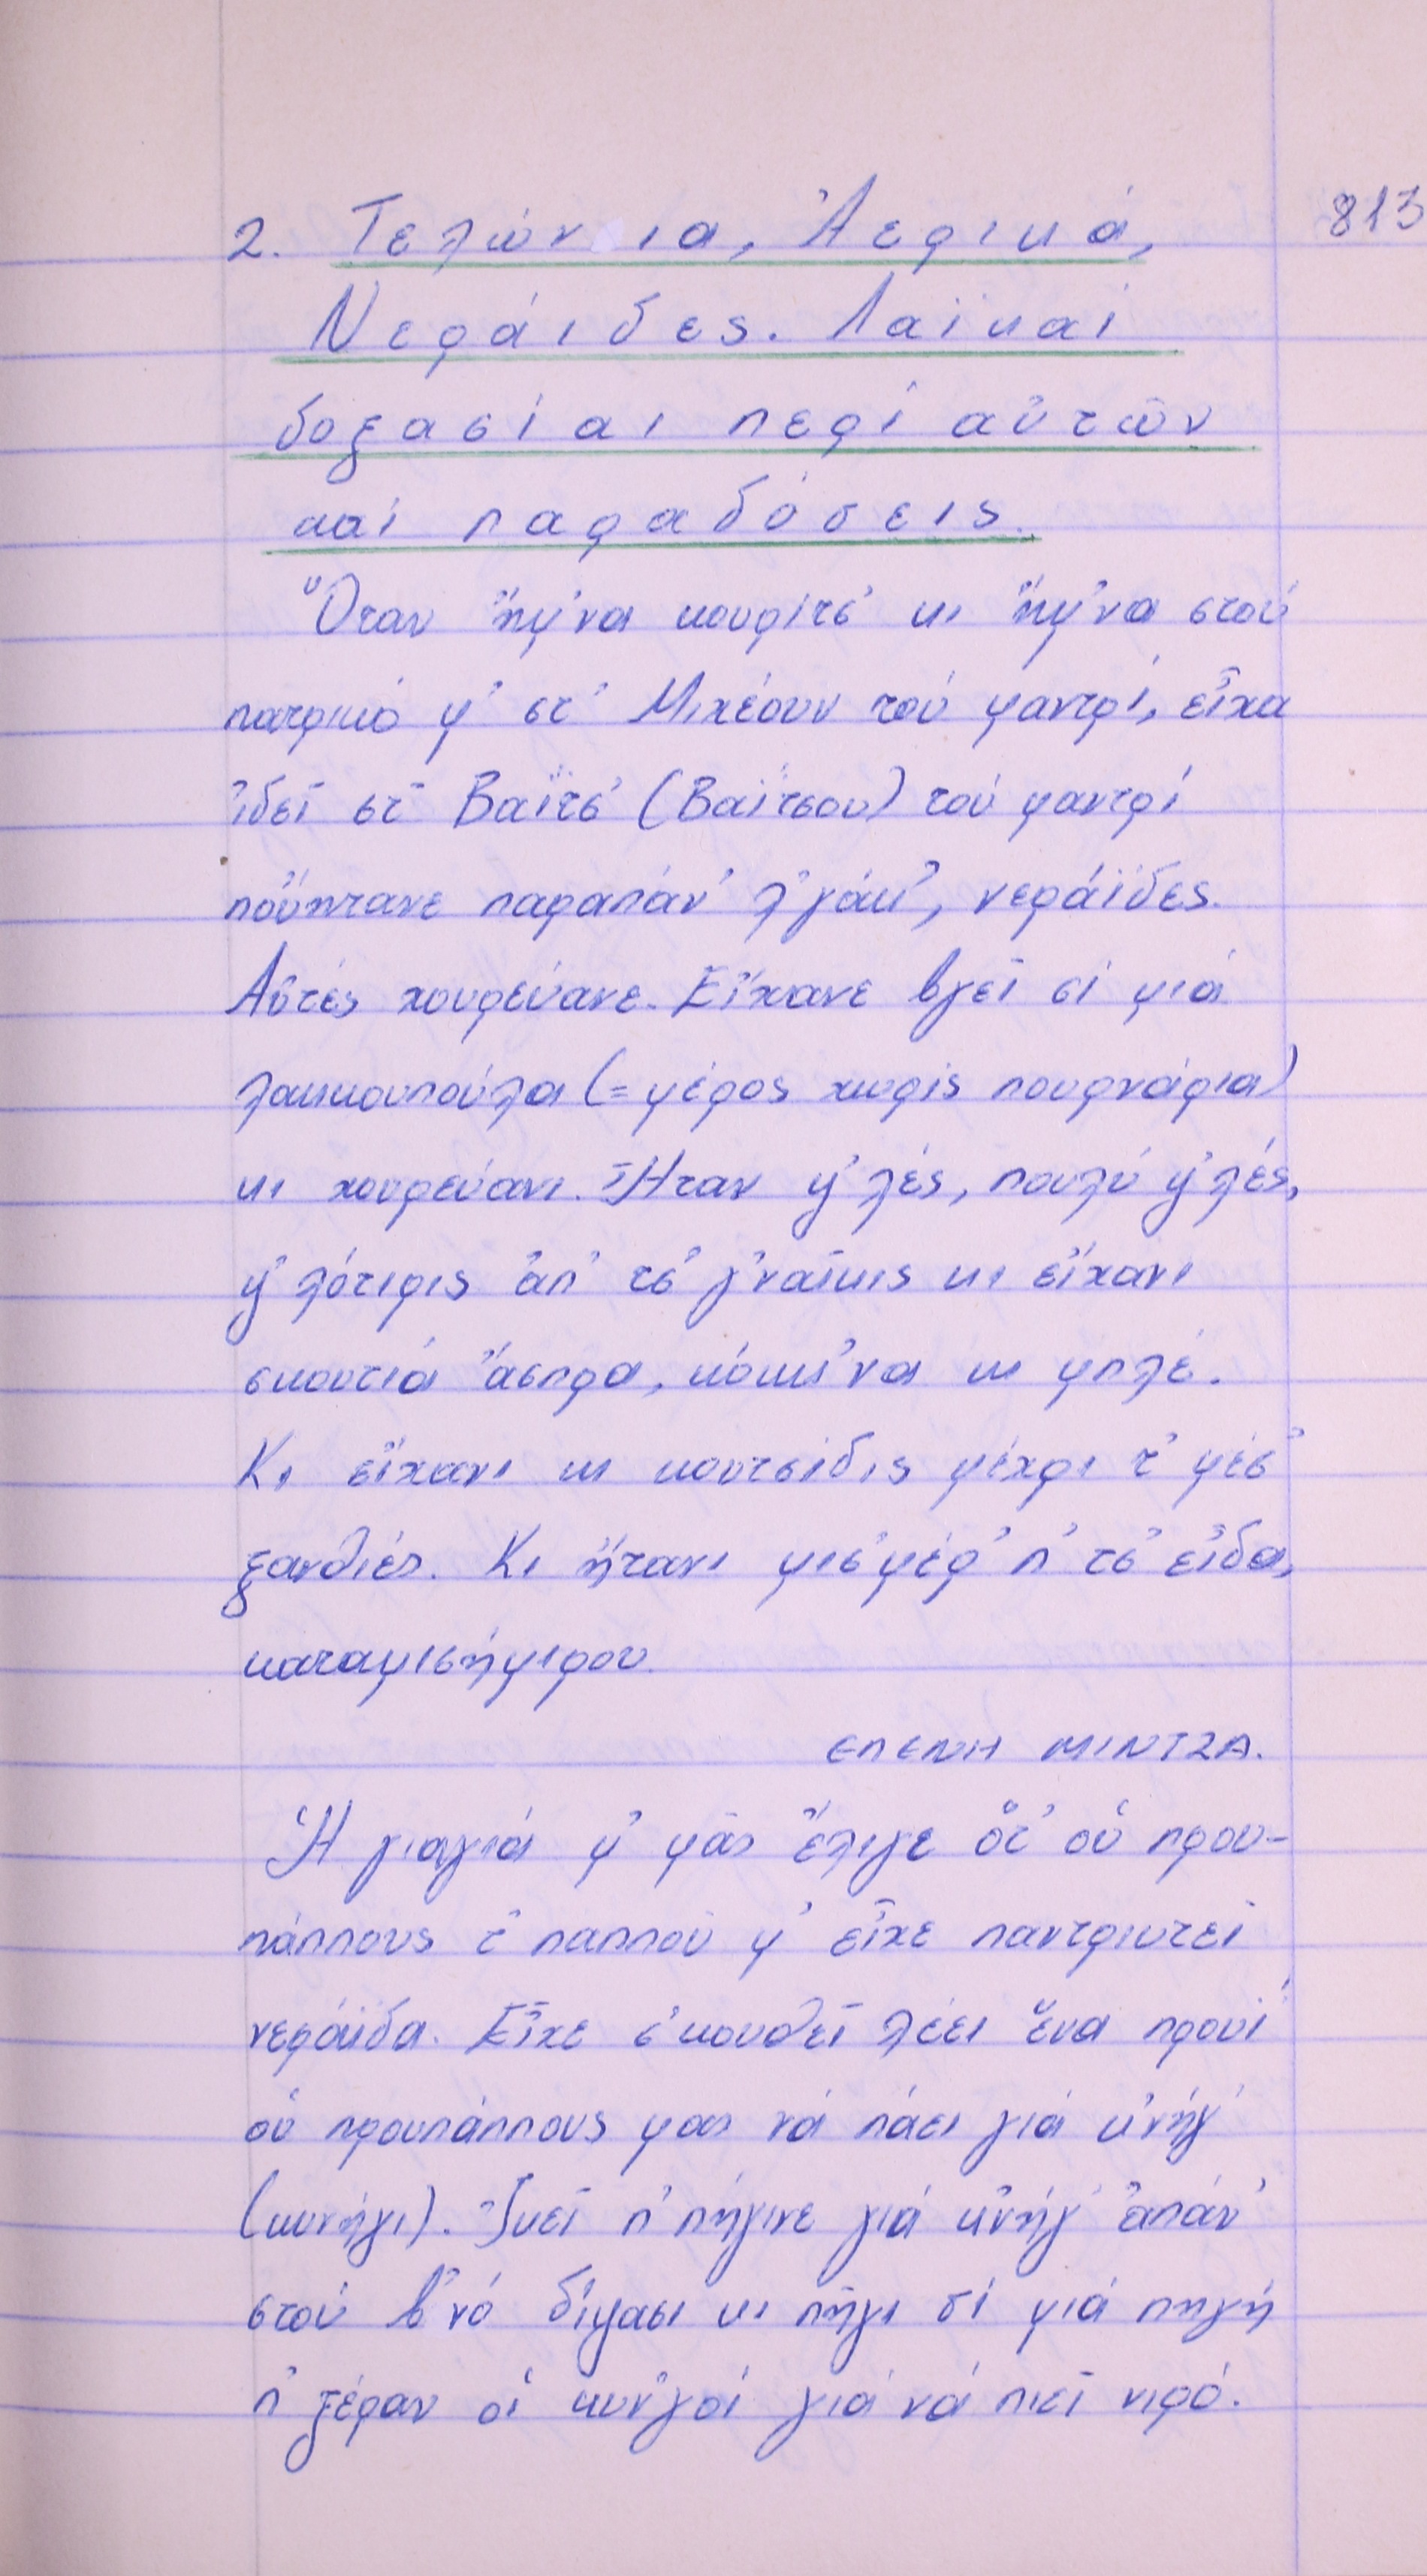 813
2. Τελώνια, Ἀερικά,
Νεράιδες. Λαϊκαί
δοξασίαι περί αὐτῶν
καί παραδόσεις.
Ὅταν ἤμ'να κουρίτσ' κι ἤμ'να στού
πατρικό μ' στ' Μιχέουν τού μαντρί, εἶχα
ἰδεῖ στ Βαΐτσ' (Βαΐτσου) τού μαντρί
ποὔηταν παραπάν' λ'γάκ', νεράϊδες.
Αὐτές χουρεύανε. Εἴχανε βγεῖ σί μιά
λακκουπούλα (= μέρος χωρίς πουρνάρια)
κι χουρεύανι. Ἦταν ψ'λές, πουλύ ψ'λές,
ψ'λότιρις ἀπ' τσ' γ'ναῖκις κι εἴχανι
σκουτιά ἄσπρα, κόκκ'να κι μπλέ.
Κι εἴχανι κι κουτσίδις μέχρι τ' μέσ'
ξανθιές. Κι ἤτανι μισ'μέρ' π' τσ' εἶδα,
καταμισήμιρου.
ΕΛΕΝΗ ΜΙΝΤΖΑ.
Ἡ γιαγιά μ' μᾶς ἔλιγε ὅτ' οὑ πρου-
πάππους τ' παππού μ' εἶχε παντριυτεῖ
νεράιδα. Εἶχε σ'κουθεῖ λέει ἕνα προυί
οὑ προυπάππους μας νά πάει γιά κ'νήγ'
(κυνήγι). Ἰκεῖ π' πήγινε γιά κ'νήγ' ἀπάν'
στού β'νό δίψασι κι πῆγι σί μιά πηγή
π' ξέραν οἱ κυν'γοί γιά νά πιεῖ νιρό.